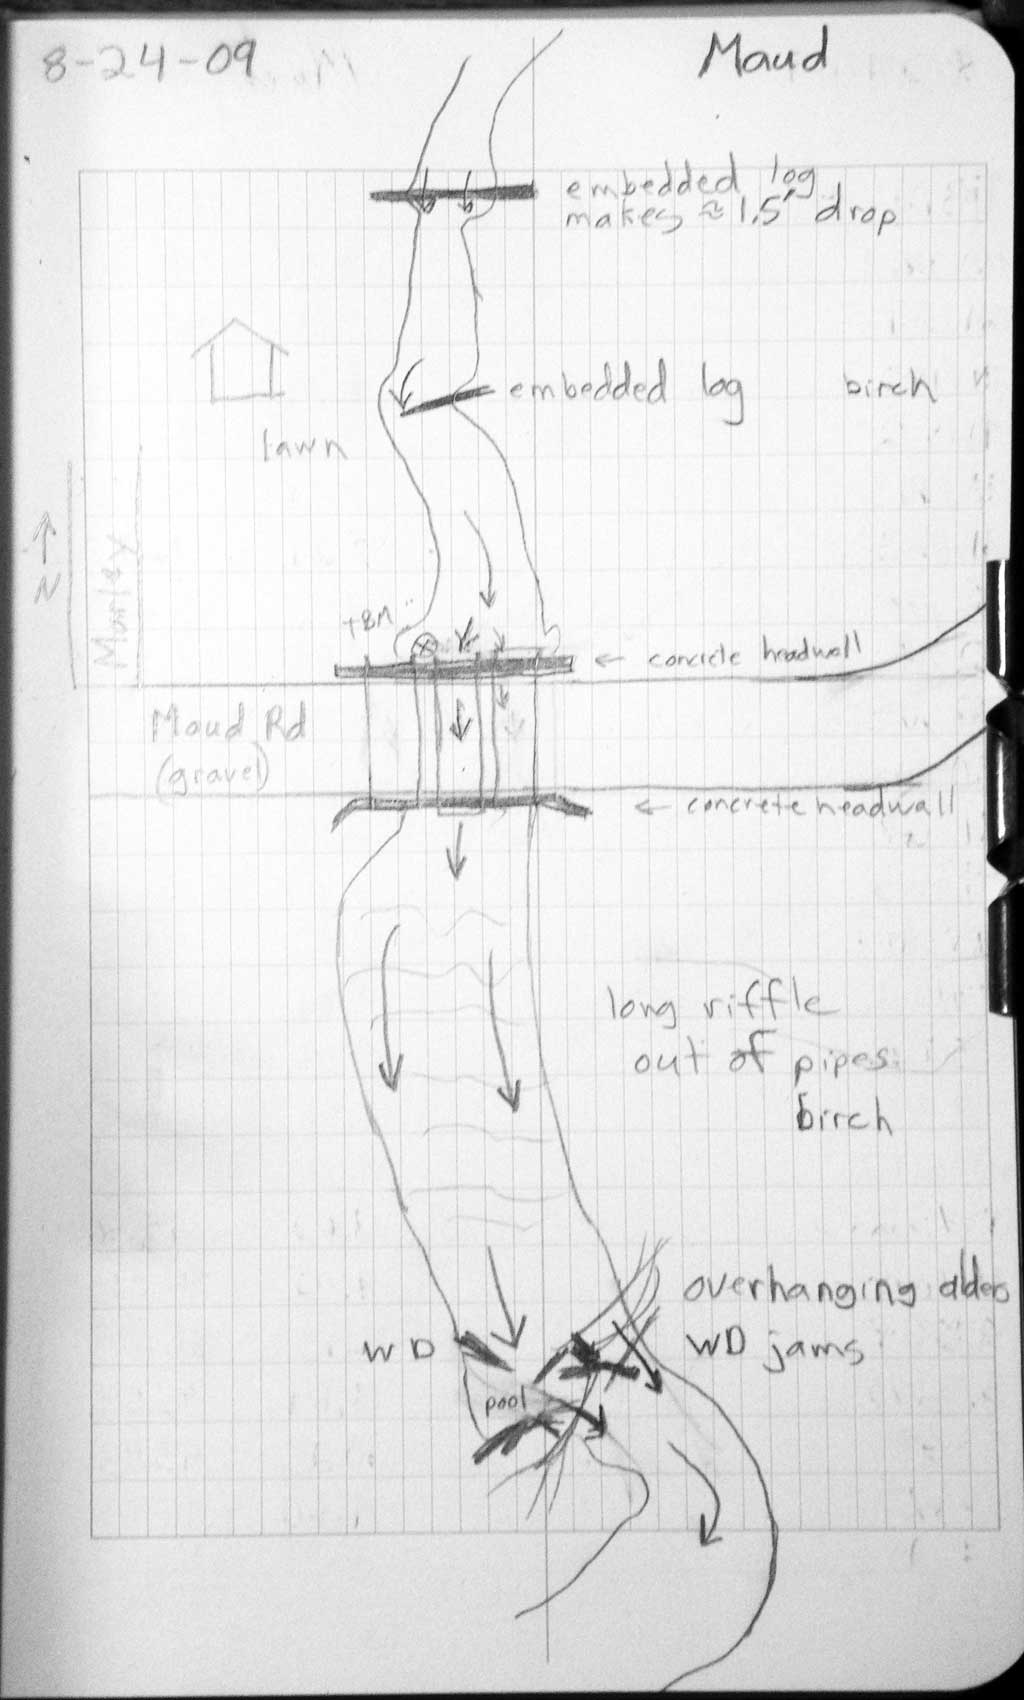 8-24-09
Maud
embedded log
makes ≈ 1.5' drop
embedded log
birch
lawn
N
Marley
TBM
← concrete headwall
Maud Rd
(gravel)
← concrete headwall
long riffle
out of pipes
birch
overhanging alders
WD
WD jams
pool